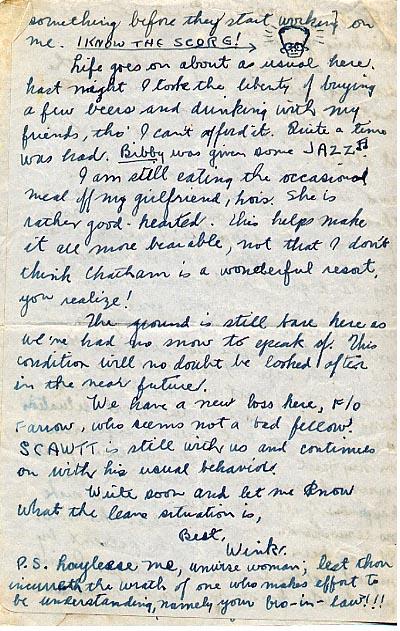 something before they start working on
me. I KNOW THE SCORE!
Life goes on about as usual here.
Last night I took the liberty of buying
a few beers and drinking with my
friends, tho' I can't afford it. Quite a time
was had. Bibby was given some JAZZ!!
I am still eating the occasional
meal off my girlfriend, She is
rather good-hearted. This helps make
it all more bearable, not that I don't
think Chatham is a wonderful resort,
you realize!
The ground is still bare here as
we've had no snow to speak of. This
condition will no doubt be looked after
in the near future.
We have a new boss here, F/O
Farrow, who seems not a bad fellow.
SCAWTT is still with us and continues
on with his usual behavior.
Write soon and let me know
what the leave situation is,
Best,
Wink.
P.S. me, unwise woman; lest thou
incurreth the wrath of one who makes effort to
be understanding, namely your bro-in-law!!!